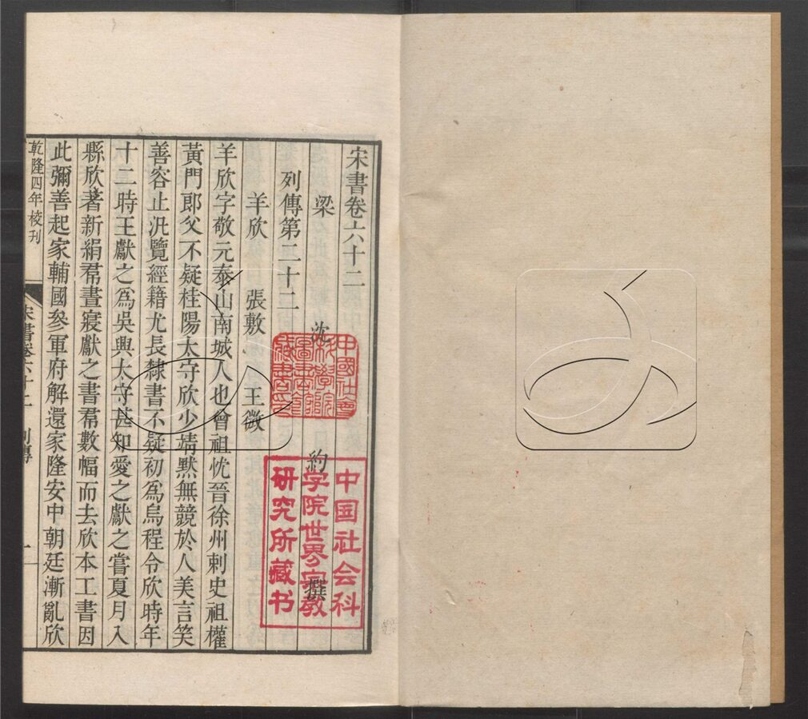 宋書卷六十二
梁 沈 約 撰
列傳第二十二
羊欣 張敷 王微
羊欣字敬元泰山南城人也曾祖忱晉徐州刺史祖權
黃門郎父不疑桂陽太守欣少靖默無競於人美言笑
善容止汎覽經籍尤長隸書不疑初爲烏程令欣時年
十二時王獻之爲吳興太守甚知愛之獻之嘗夏月入
縣欣著新絹帬晝寢獻之書帬數幅而去欣本工書因
此彌善起家輔國參軍府解還家隆安中朝廷漸亂欣
乾隆四年校刊
宋書卷六十二 列傳 一
中國社會
科學院
圖書館
藏書印
中国社会科
学院世界宗教
研究所藏书